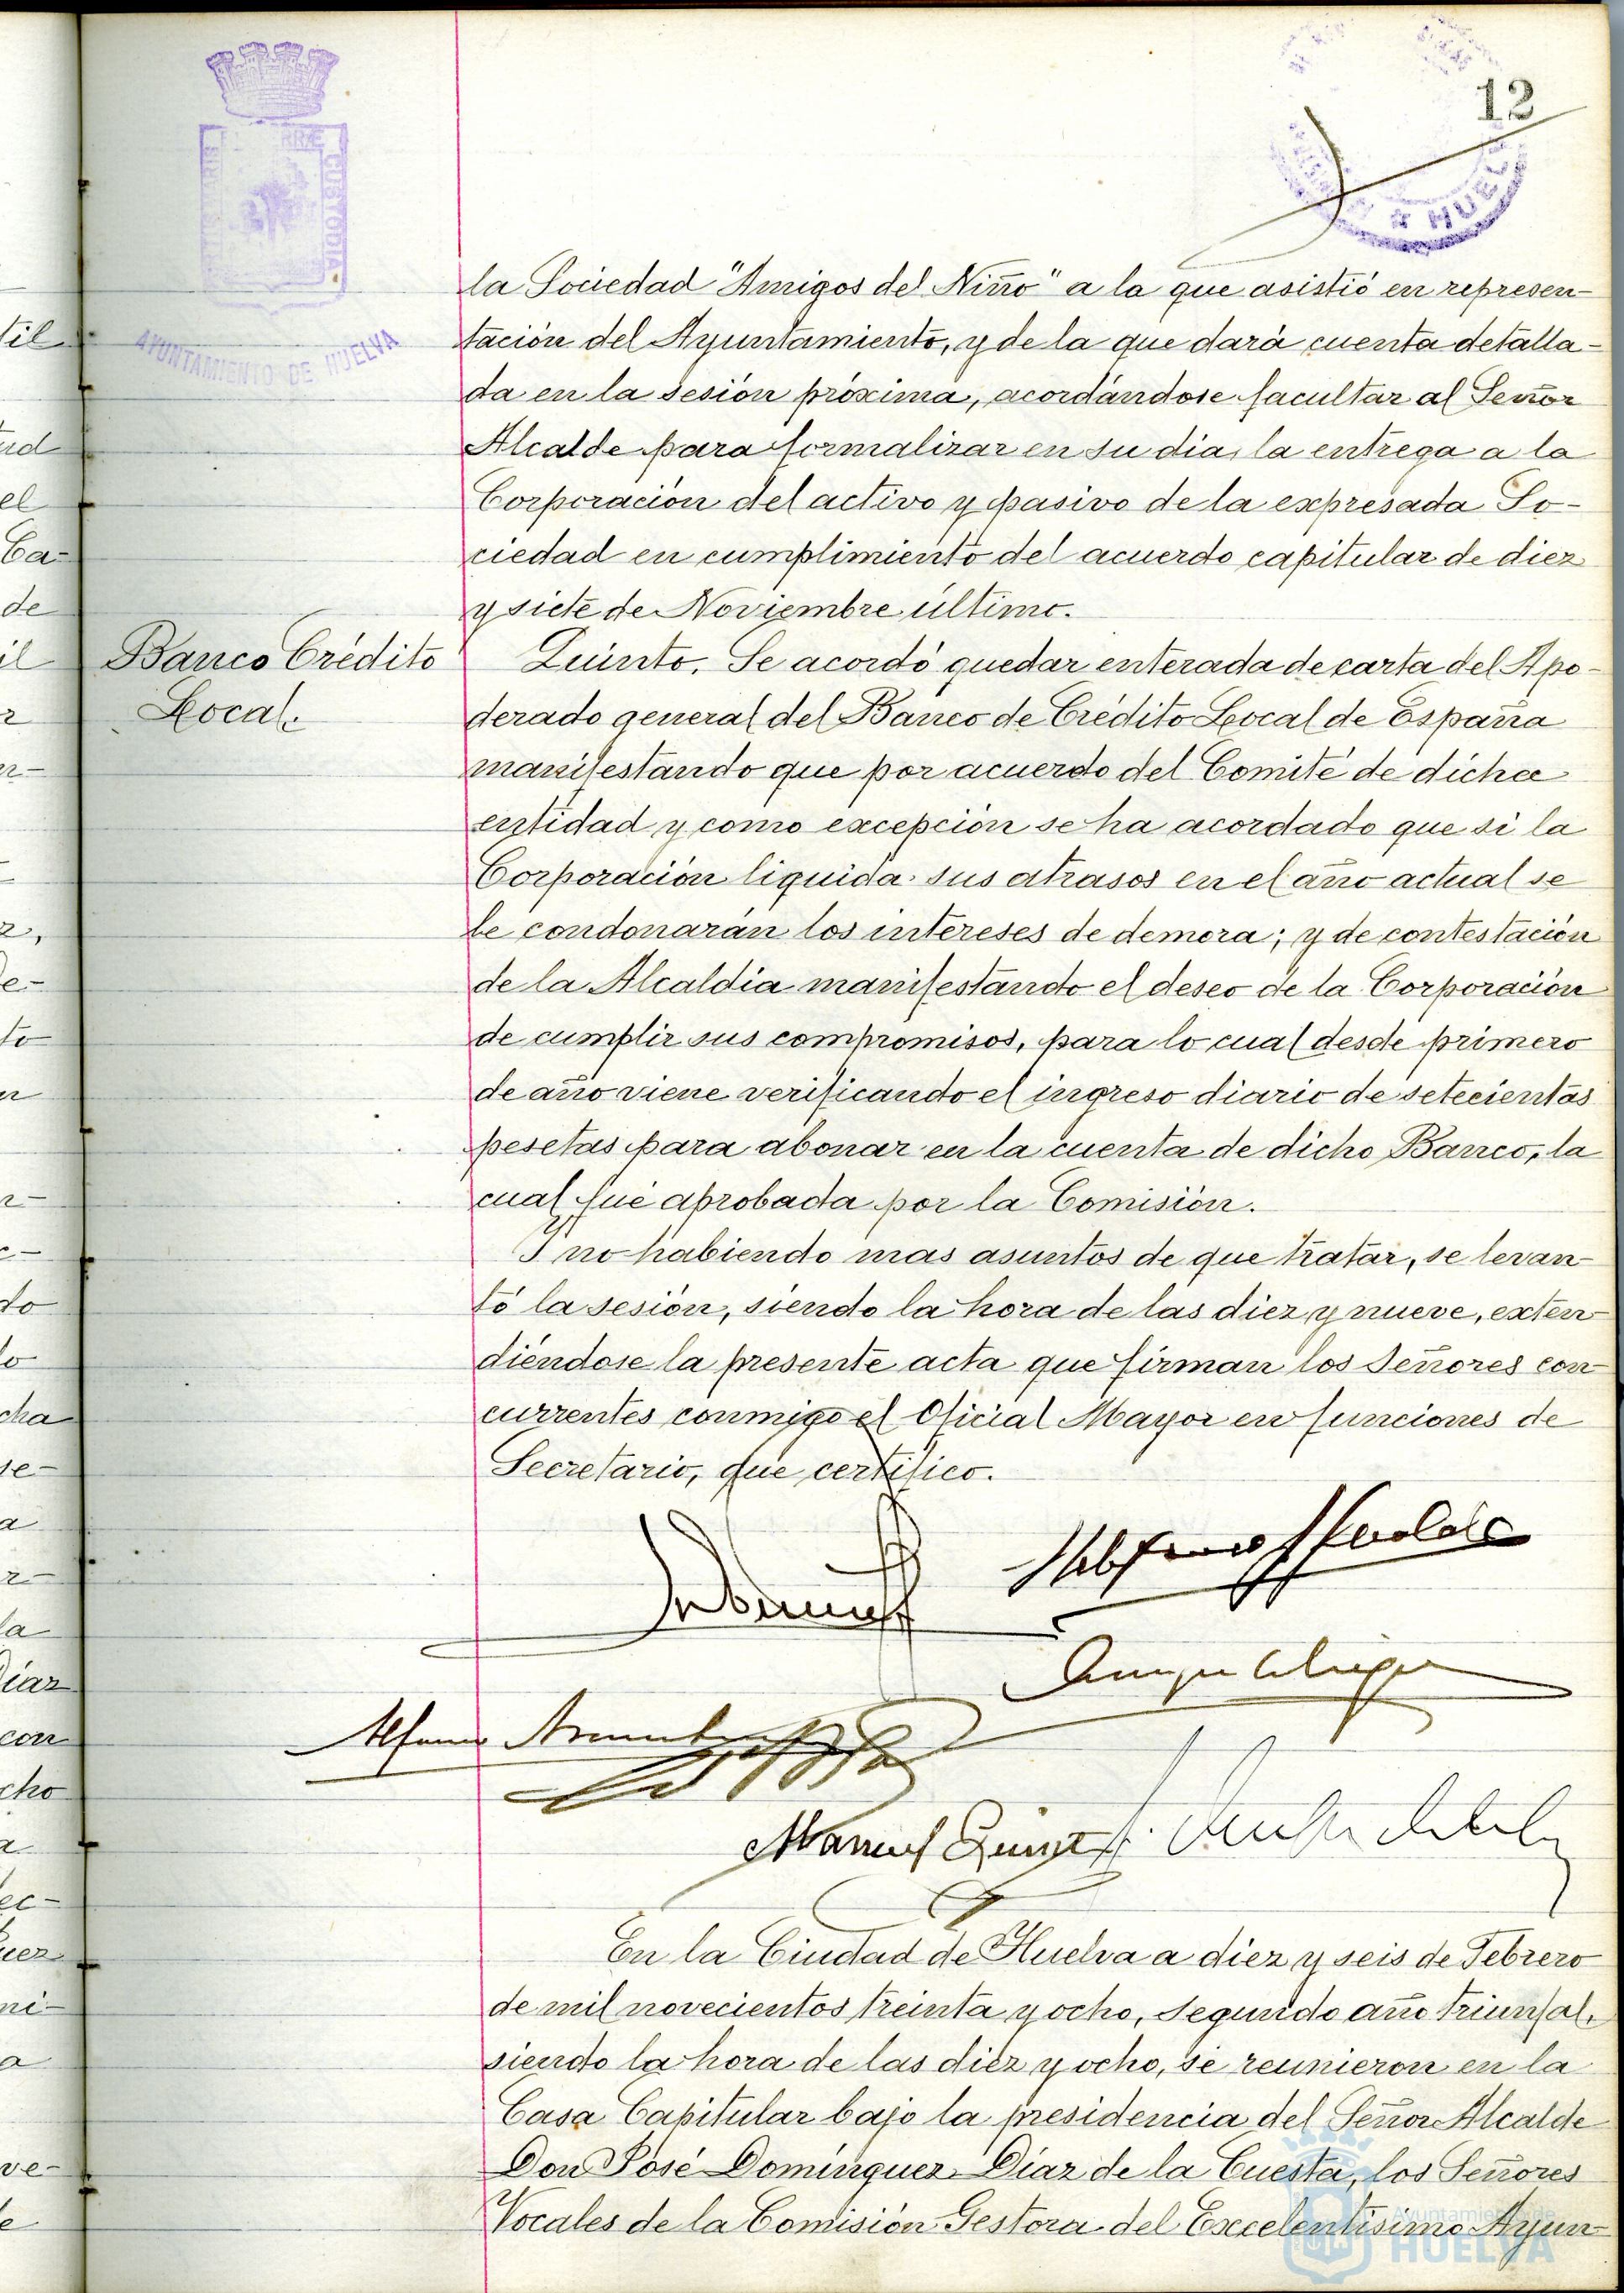 12
AYUNTAMIENTO DE HUELVA
CUSTODIA
HUEL
la Sociedad "Amigos del Niño" a la que asistió en represen-
tación del Ayuntamiento, y de la que dará cuenta detalla-
da en la sesión próxima, acordándose facultar al Señor
Alcalde para formalizar en su dia, la entrega a la
Corporación del activo y pasivo de la expresada So-
ciedad en cumplimiento del acuerdo capitular de diez
y siete de Noviembre último.
Banco Crédito
Local.
Quinto. Se acordó quedar enterada de carta del Apo-
derado general del Banco de Crédito Local de España
manifestando que por acuerdo del Comité de dicha
entidad y como excepción se ha acordado que si la
Corporación liquida sus atrasos en el año actual se
le condonarán los intereses de demora; y de contestación
de la Alcaldía manifestando el deseo de la Corporación
de cumplir sus compromisos, para lo cual desde primero
de año viene verificando el ingreso diario de setecientas
pesetas para abonar en la cuenta de dicho Banco, la
cual fué aprobada por la Comisión.
Y no habiendo mas asuntos de que tratar, se levan-
tó la sesión, siendo la hora de las diez y nueve, exten-
diéndose la presente acta que firman los Señores con-
currentes conmigo el Oficial Mayor en funciones de
Secretario, que certifico.
Manuel
En la Ciudad de Huelva a diez y seis de Febrero
de mil novecientos treinta y ocho, Segundo año triunfal,
siendo la hora de las diez y ocho, se reunieron en la
Casa Capitular bajo la presidencia del Señor Alcalde
Don José Domínguez Díaz de la Cuesta, los Señores
Vocales de la Comisión Gestora del Excelentísimo Ayun-
Ayuntamiento de
HUELVA